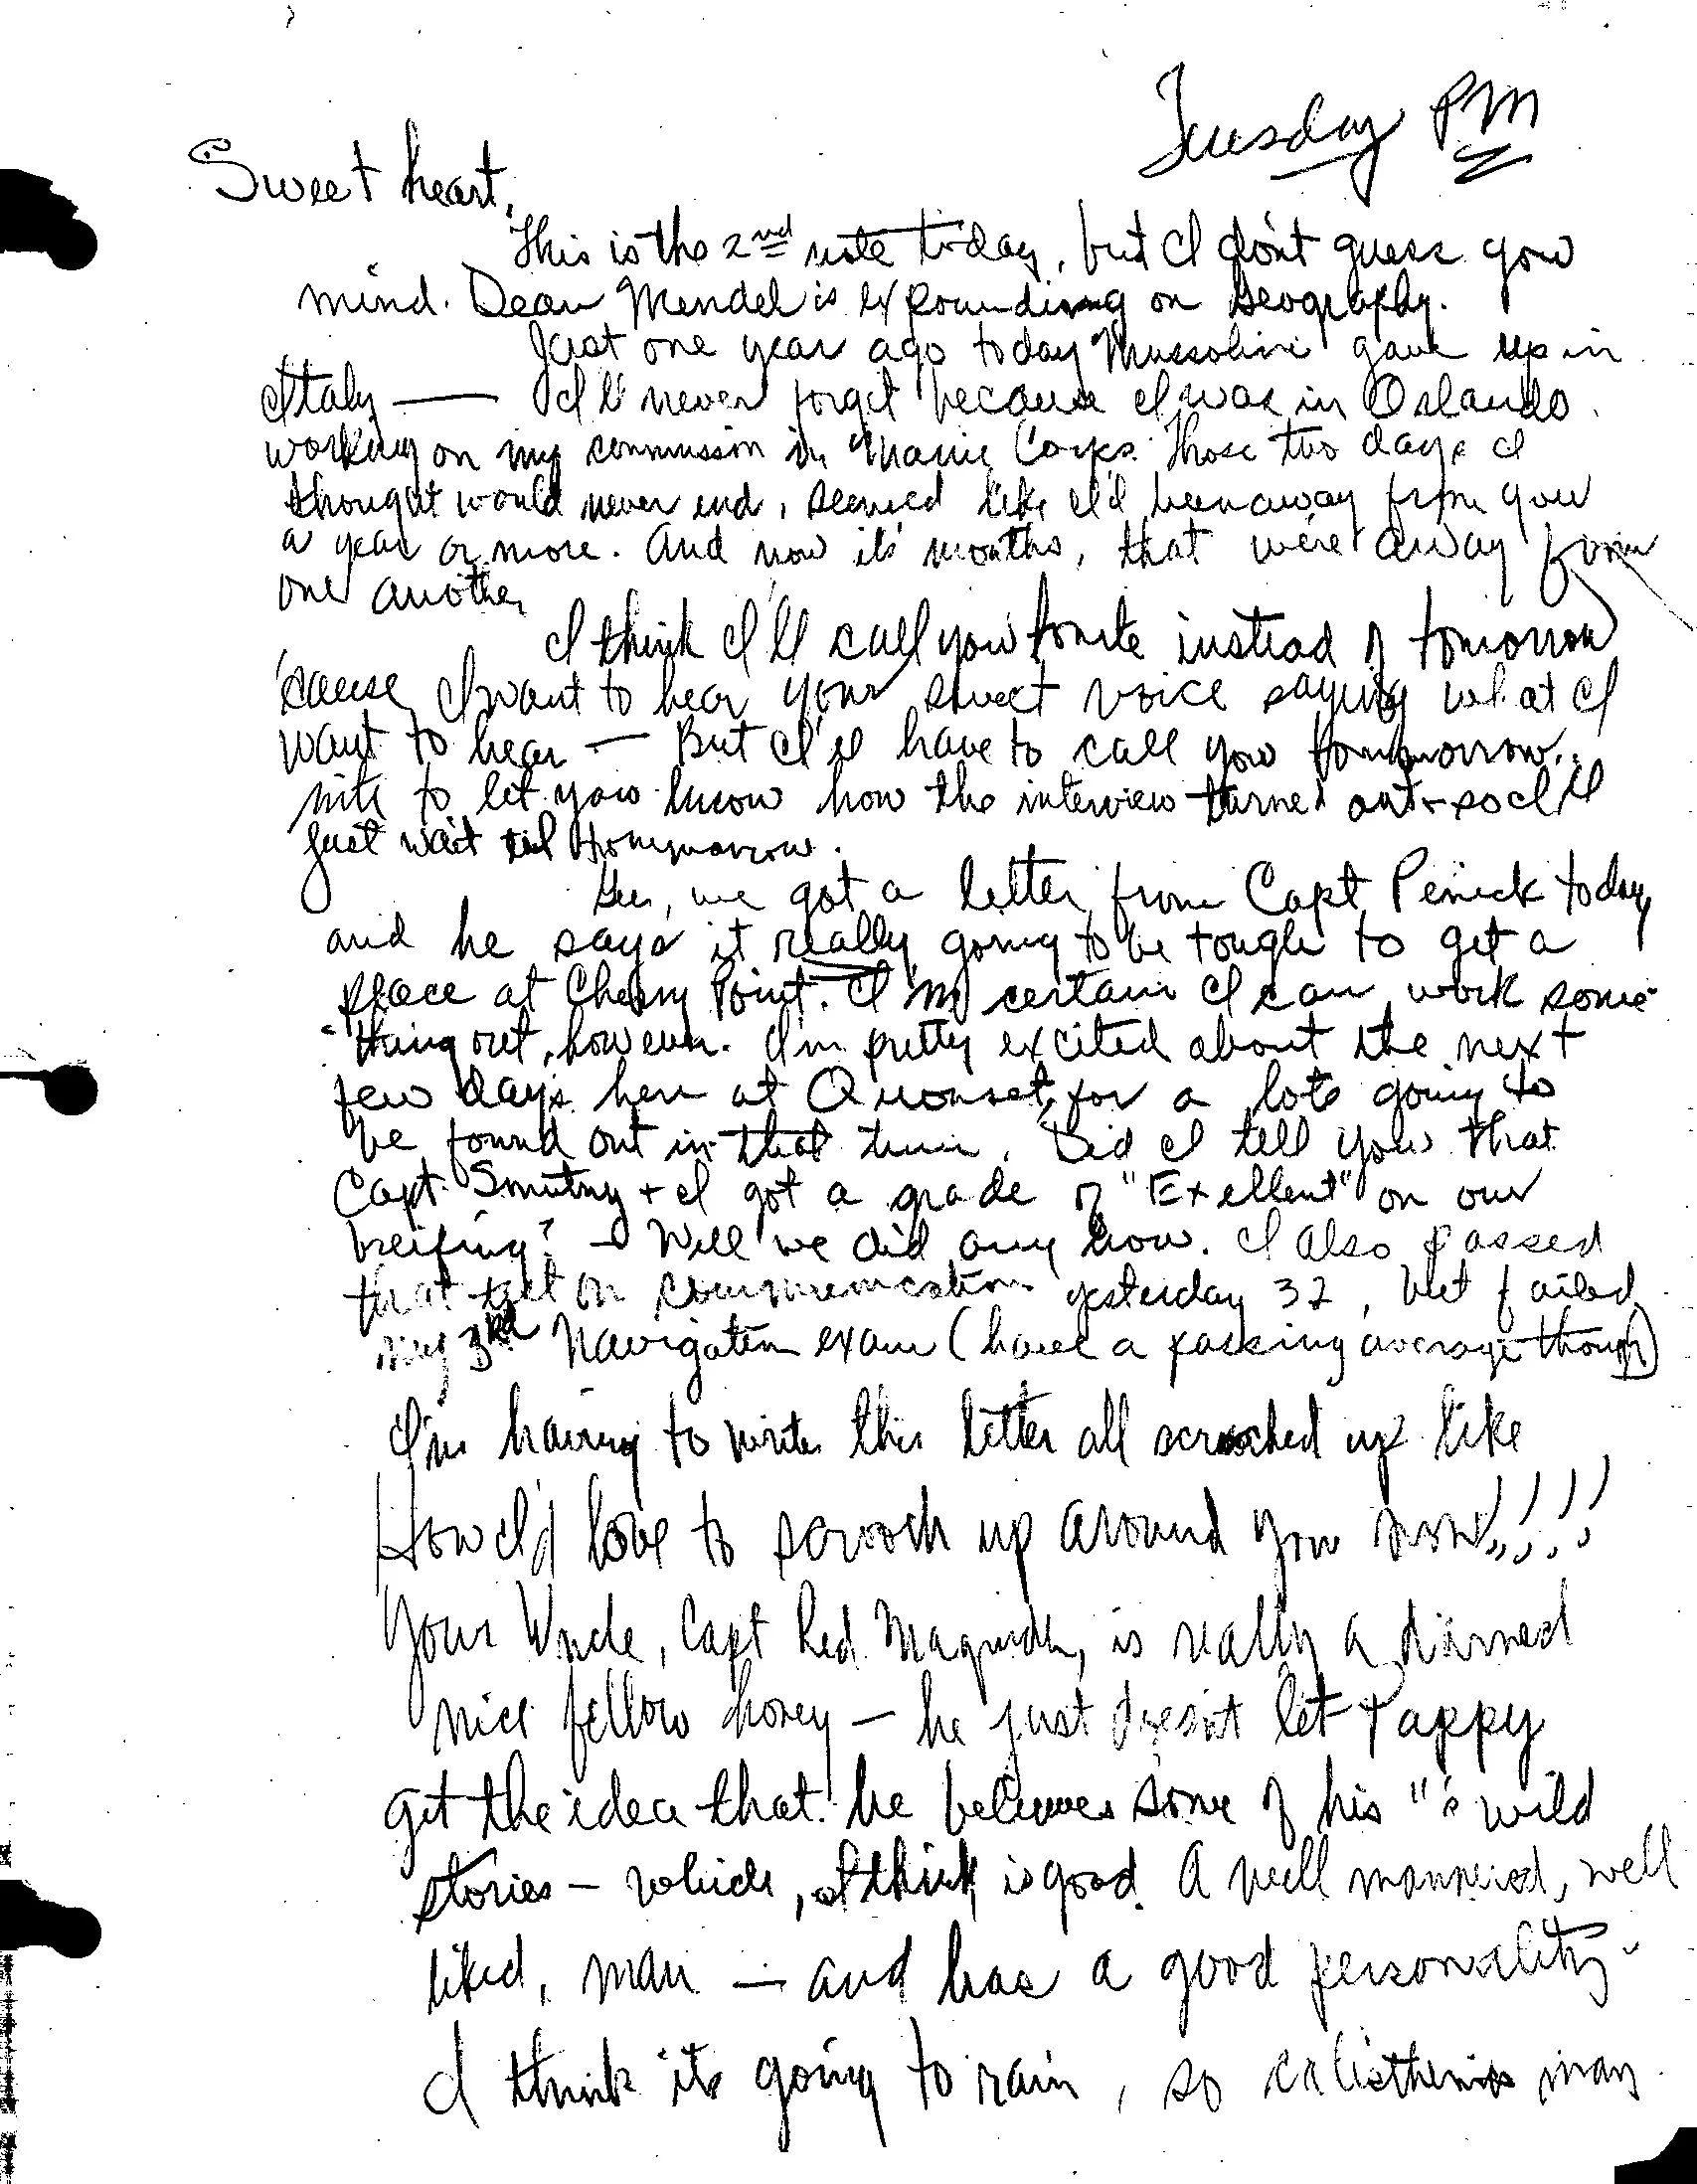 Tuesday PM
Sweet heart,
This is the 2nd note today, but I don't guess you
mind. Dean Mendel is expounding on Geography.
Just one year ago today Mussolini gave up in
Italy — I'll never forget because I was in Orlando
working on my commission in Marine Corps. Those two days I
thought would never end, seemed like I'd been away from you
a year or more. And now it's months, that we're away from
one another
I think I'll call you tonite instead of tomorrow
'cause I want to hear your sweet voice saying what I
want to hear — But I'll have to call you tommorrow
nite to let you know how the interview turned out - so I'll
just wait til tommorrow.
Gee, we got a letter from Capt Penick today
and he says it really going to be tough to get a
place at Cherry Point. I'm certain I can work some-
thing out, however. I'm pretty excited about the next
few days here at Quonset, for a lots going to
be found out in that time. Did I tell you that
Capt. Smutny + I got a grade of "Exellent" on our
breifing? - Well we did any how. I also passed
that test on communication yesterday 32, but failed
my 3rd Navigation exam (have a passing average though)
I'm having to write this letter all scrooched up like
How I'd love to scrooch up around you now!!!!!
Your Uncle, Capt Red, is really a darned
nice fellow honey — he just doesn't let Pappy
get the idea that he believes some of his "s wild
stories — which, I think is good. A well mannered, well
liked, man — and has a good personality -
I think it's going to rain, so calisthenics may